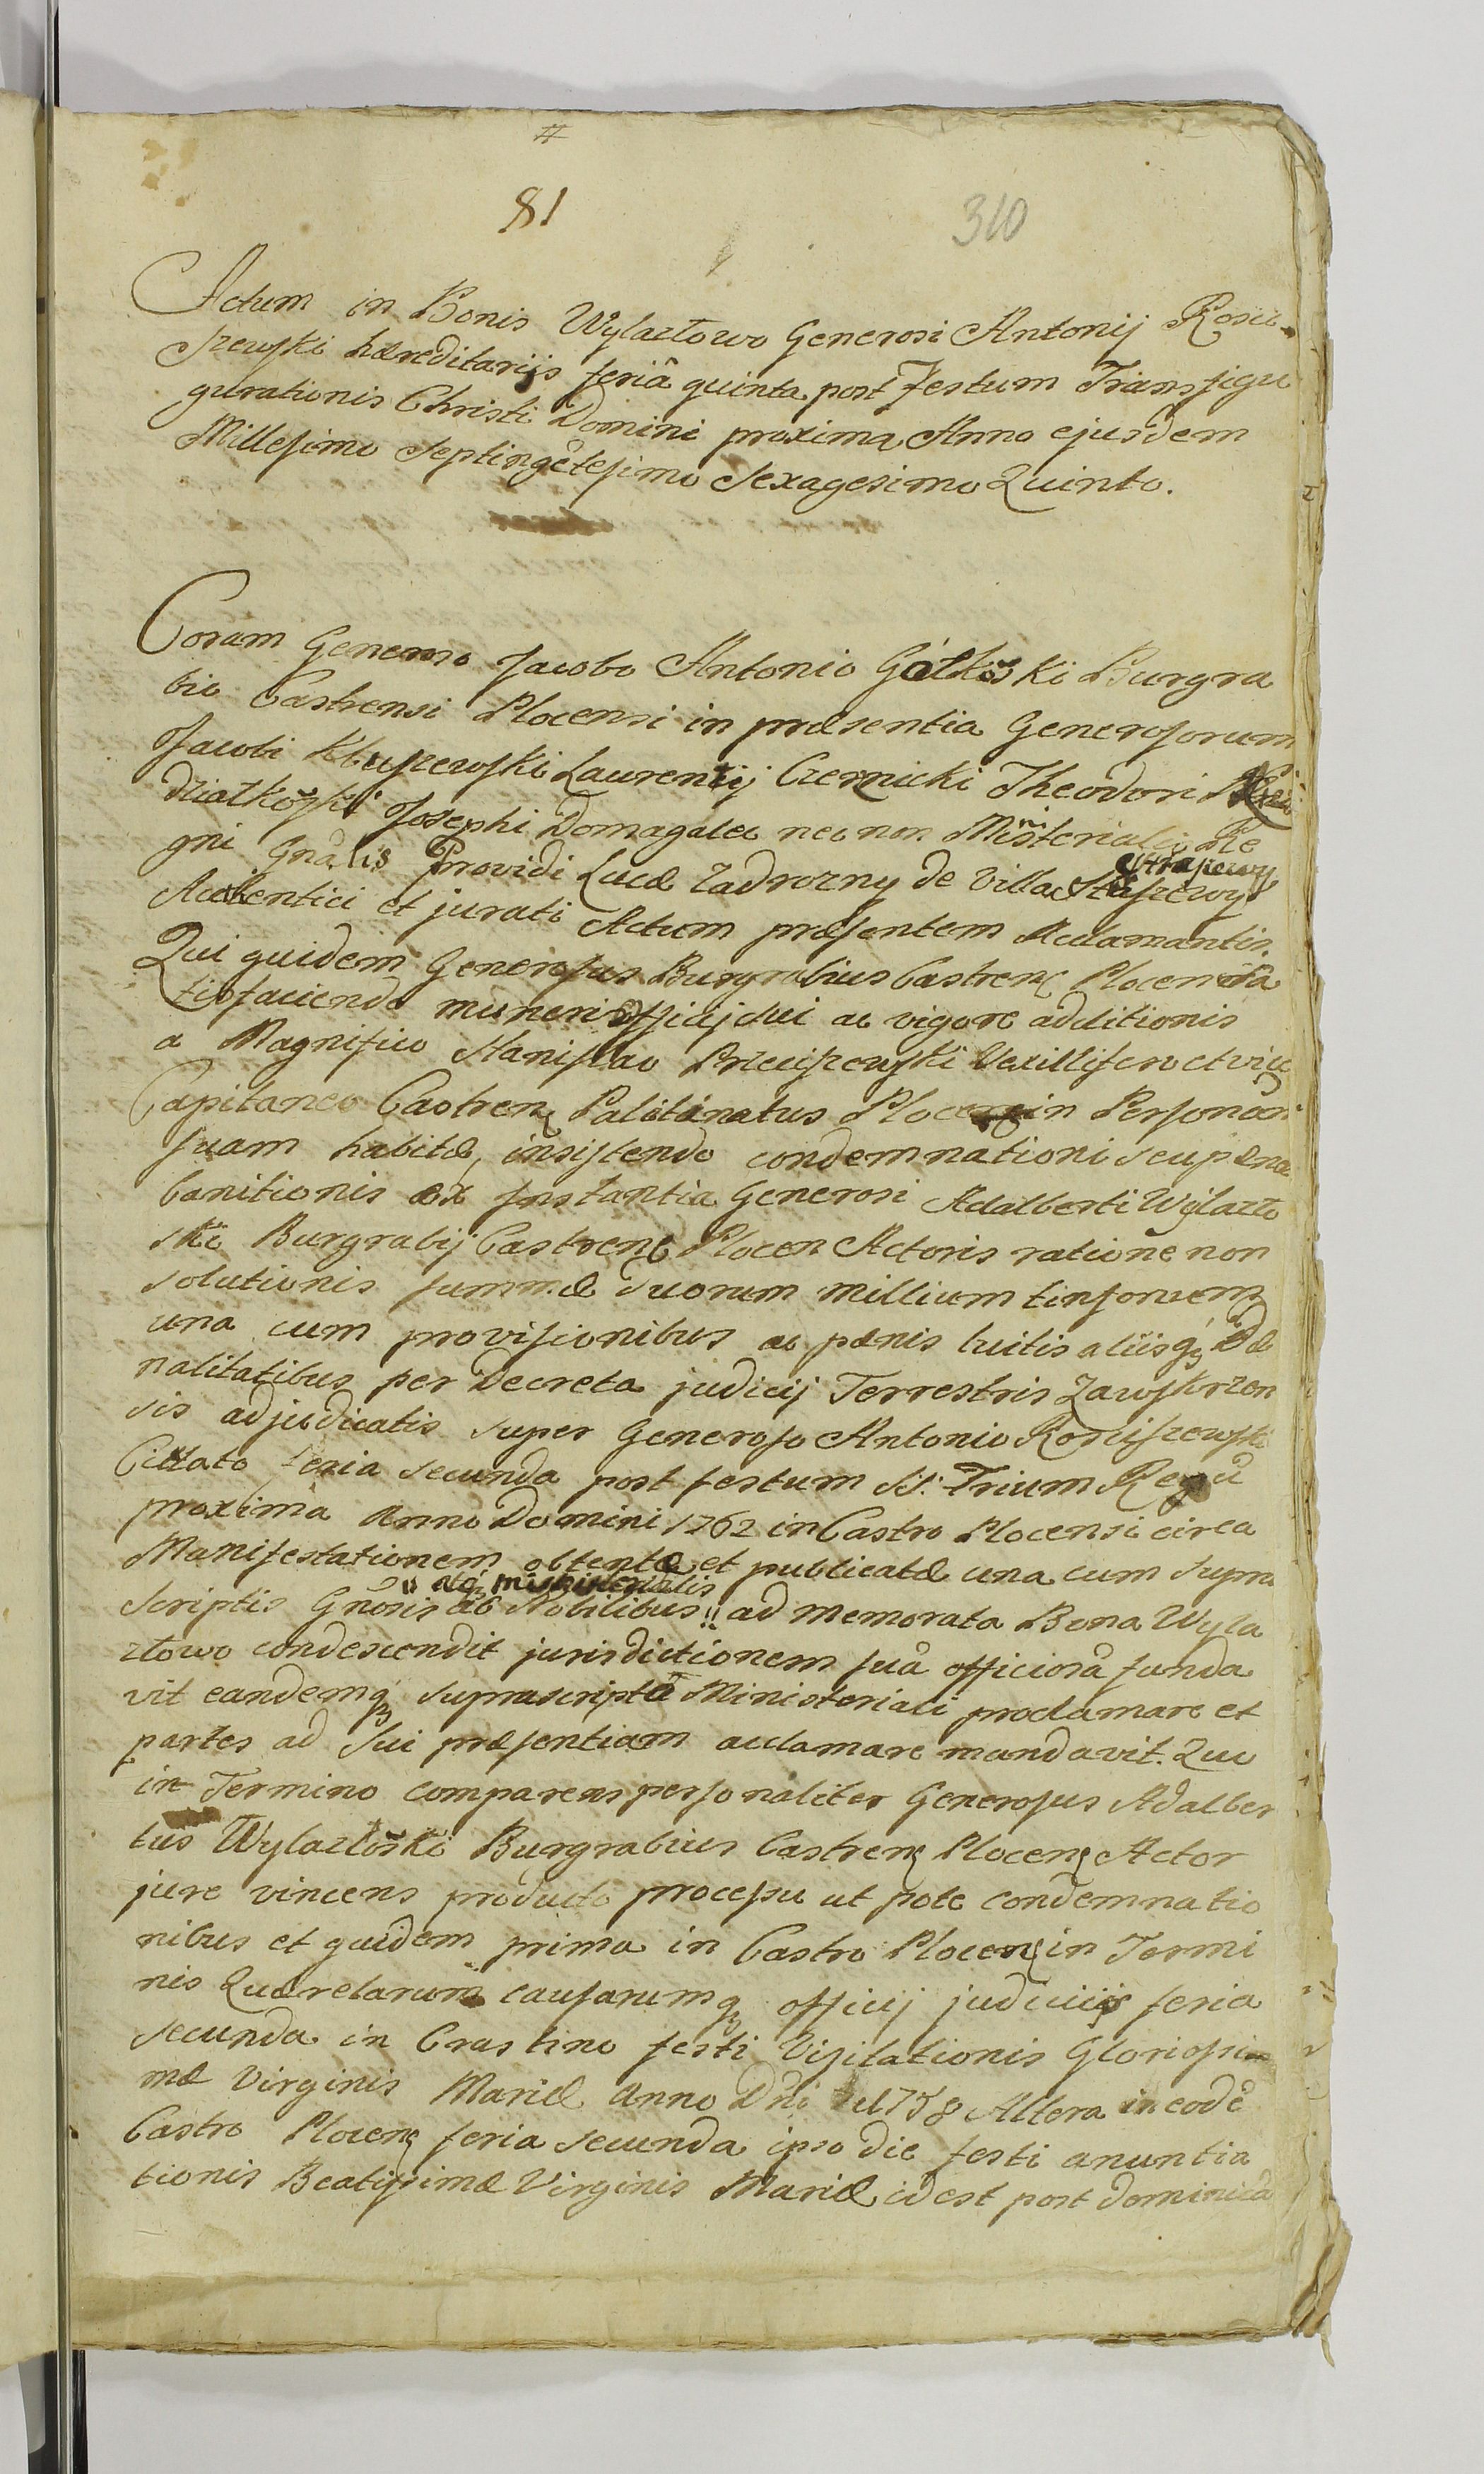 #
81 310
Actum in Bonis Wylazłowo Generosi Antonij Rości-
szewski hæreditarijs feriâ quinta post Festum Transfigu
gurationis Christi Domini proxima Anno ejusdem
Millesimo Septingētesimo Sexagesimo Quinto.
Coram Generoso Jacobo Antonio Gółkoski Burgra
bio Castrensi Plocensi in præsentia Generosorum
Jacobi Kłuszewski Laurentij Czernicki Theodori
Działkoski Josephi Domagała nec non Misterialis Re
gni Gnalis Providi Lucæ Zadrozny de Villa
Autentici et jurati Actum præsentem Acclamantis.
Qui quidem Generosus Burgrabius Castren Plocen sa
tisfaciendo muneri officij sui ac vigore additionis
a Magnifico Stanislao Prieciszewski Vexillifero et vice
Capitaneo Castren Palatinatus Plocen in Personam
suam habitæ, insistendo condemnationi seu pæna
banitionis ex Instantia Generosi Adalberti Wylazło
ski Burgrabij Castren Plocen Actoris ratione non
solutionis summæ duorum millium tinforum
una cum provisionibus ac pænis luitis aliisq
nalitatibus per Decreta judicij Terrestris Zawskrzen
sis adjudicatis super Generoso Antonio Rosciszewski
Cittato feria secunda post festum SS. Trium Regū
proxima Anno Domini 1762 in Castro Plocensi circa
Manifestationem obtentæ et publicatæ una cum supra
" atq ministerialis
Scriptis Gnosis ac Nobilibus !! ad memorata Bona Wyla
złowo condescendit jurisdictionem suā officiosā funda
vit eandemq suprascripto Ministeriali proclamare et
partes ad sui præsentiam acclamare mandavit. Quo
in Termino comparens personaliter Generosus Adalber
tus Wylazłoski Burgrabius Castren Plocen Actor
jure vincens producto processu ut pote condemnatio
nibus et quidem prima in Castro Plocen in Termi
nis Quærelarum causarumq officij judicii feria
secunda in Crastino festi Visitationis Gloriosissi
mæ Virginis Mariæ Anno Dni 1758 Altera in eodē
Castro Plocen feria secunda ipso die festi anuntia
tionis Beatissimæ Virginis Mariæ id est post dominicā